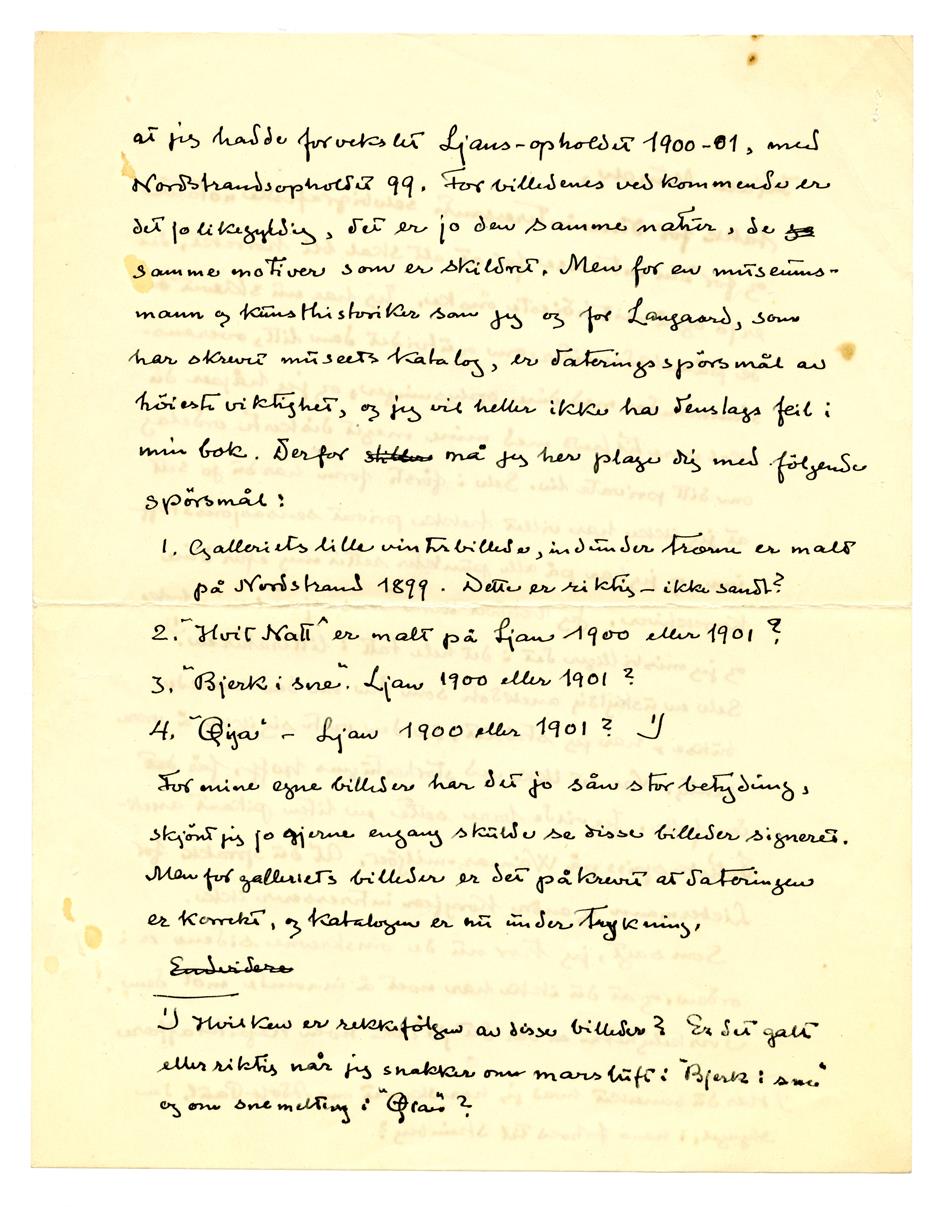 at jeg hadde forvekslet Ljans-opholdet 1900-01, med
Nordstrandsopholdet 99. For billedenes vedkommende er
det jo likegyldig, det er jo den samme natur, de
samme motiver som er skildret. Men for en museums-
mann og kunsthistoriker som jeg og for Langaard, som
har skrevet museets katalog, er dateringsspörsmål av
höieste viktighet, og jeg vil heller ikke ha denslags feil i
min bok. Derfor må jeg her plage dig med fölgende
spörsmål:
1. Galleriets lille vinterbillede, ind under trærne er malt
på Nordstrand 1899. Dette er riktig – ikke sandt?
2. "Hvit Natt" er malt på Ljan 1900 eller 1901?
3. "Bjerk i sne". Ljan 1900 eller 1901?
4. – Ljan 1900 eller 1901? 1)
For mine egne billeder har det jo sån stor betydning,
skjönt jeg jo gjerne engang skulde se disse billeder signeret.
Men for galleriets billeder er det påkrevet at dateringen
er korrekt, og katalogen er nu under trykning.
Endvidere
1) Hvilken er rekkefölgen av disse billeder? Er det galt
eller riktig når jeg snakker om marsluft i "Bjerk i sne"
og om snemelting i ?